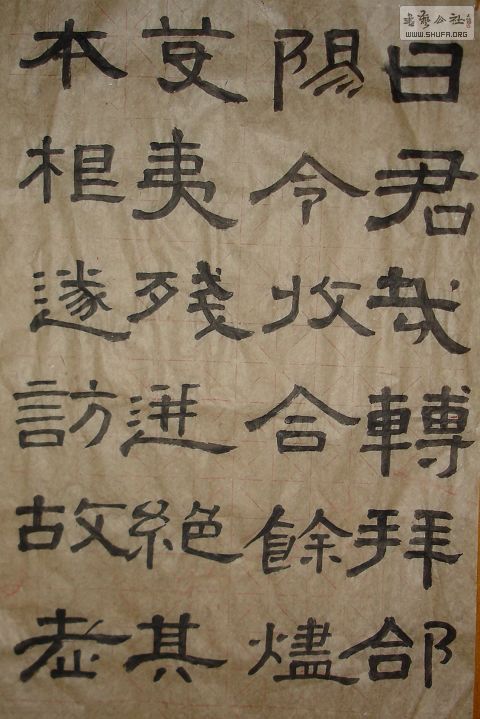 曰君哉轉拜郃
陽令收合餘燼
芟夷殘迸絕其
本根遂訪故老
書藝公社
WWW.SHUFA.ORG